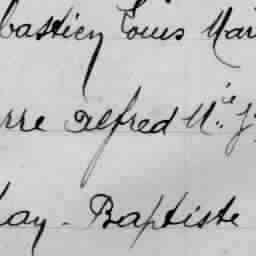 bastien Louis Mar
rre Alfred M.ie J
lay - Baptiste